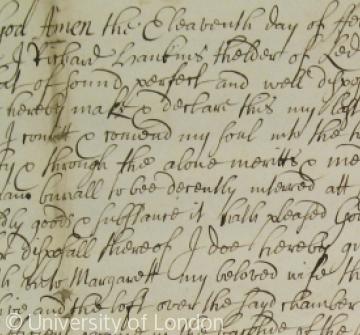 God Amen the Eleaventh day of
I Richard Hankins thelder of
of sound perfect and well
hereby make & declare this my last
I comitt & comend my soul into the
& through the alone meritts &
buriall to bee decently interred att
goods & substance it hath pleased God
disposall thereof I doe hereby
unto Margarett my beloved wife
and the loft over the sayd chamber
© University of London